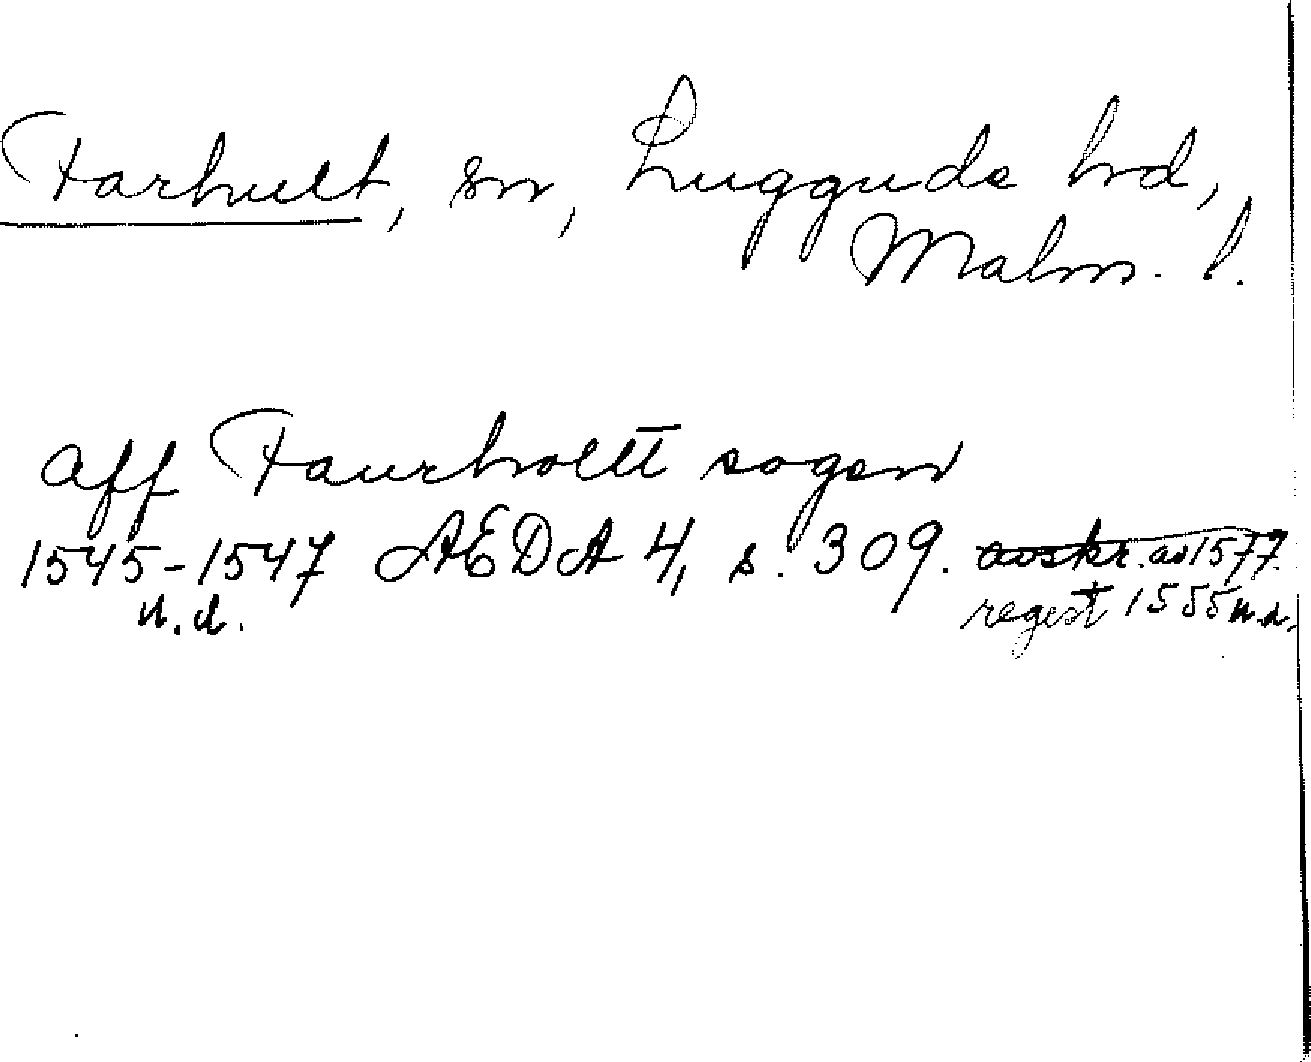 Farhult, sn, Luggude hd,
Malm. l.
aff Faurholtt sogen
1545-1547 AEDA 4, s. 309. avskr. av 1577.
n.d. regest 1555 n.d.